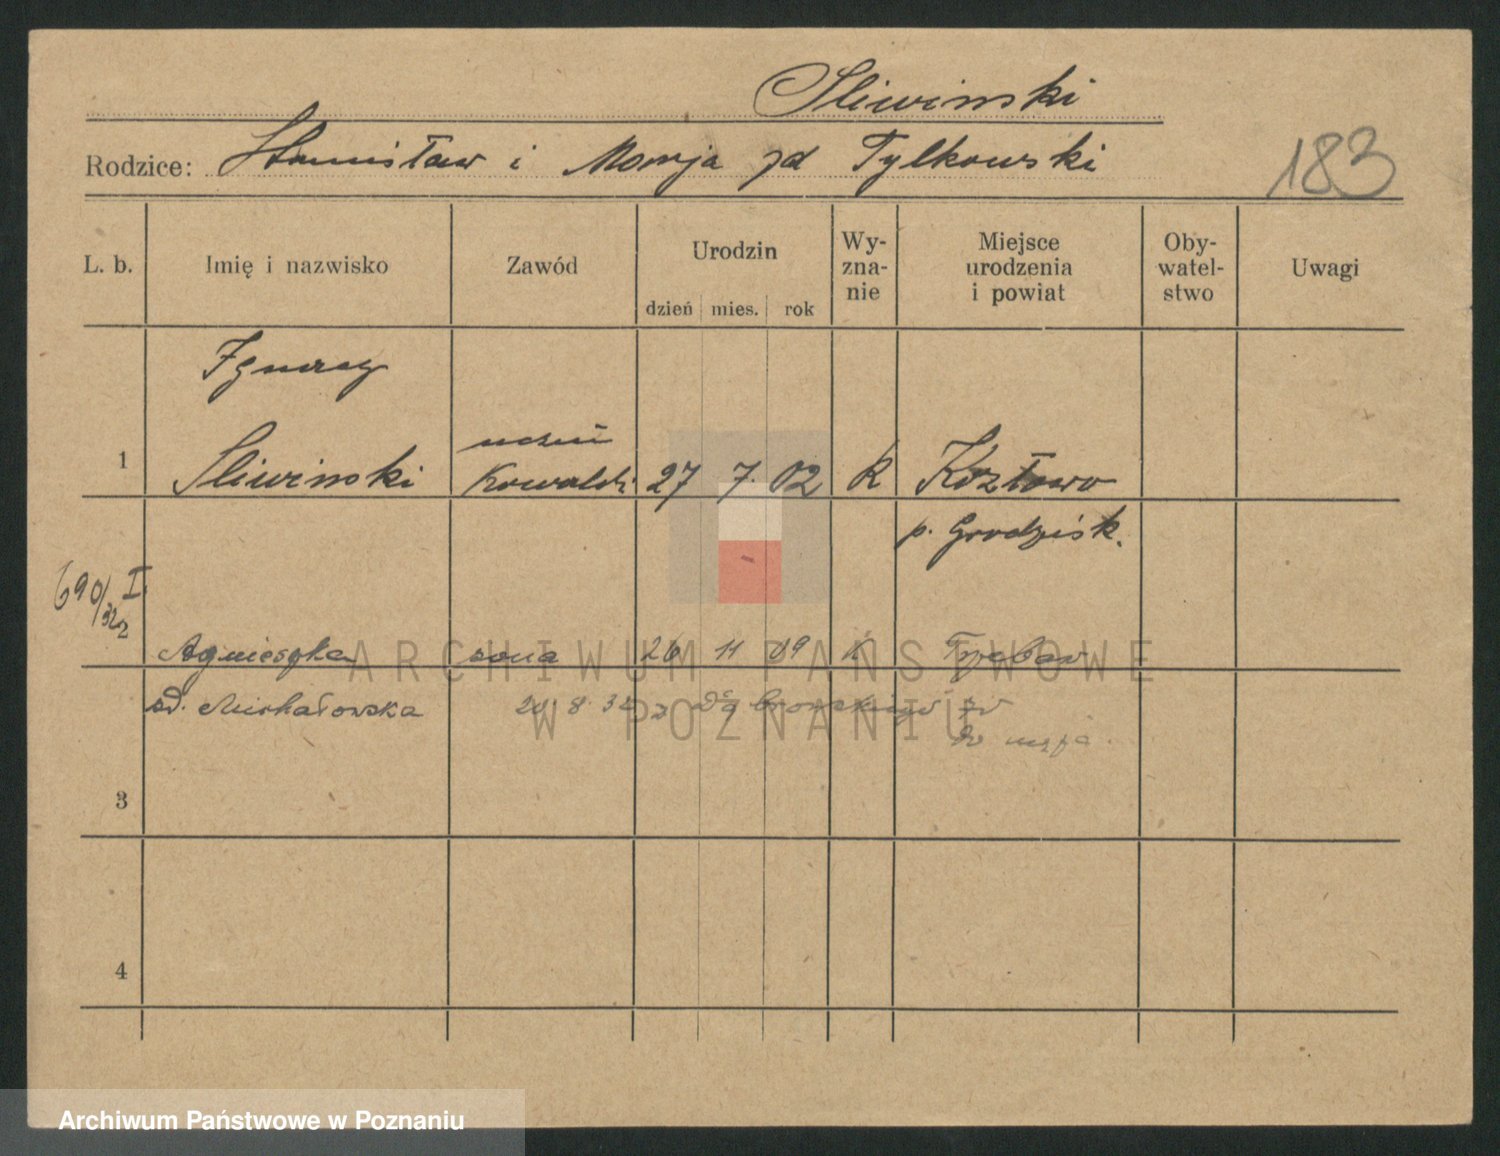 Sliwinski
Rodzice: Stanisław i Marja zd Tylkowski
183
L. b. Imię i nazwisko Zawód Urodzin dzień mies. rok Wy-zna-nie Miejsce urodzenia i powiat Oby-watel-stwo Uwagi
Ignacy
uczeń
1 Sliwinski Kowalski 27 7. 02 k Kozłowo
p. Grodzisk.
690/32 I
2 Agnieszka żona 26 11 09 k
zd. Michałowska 20.8.32
3
4
ARCHIWUM PAŃSTWOWE
W POZNANIU
Archiwum Państwowe w Poznaniu